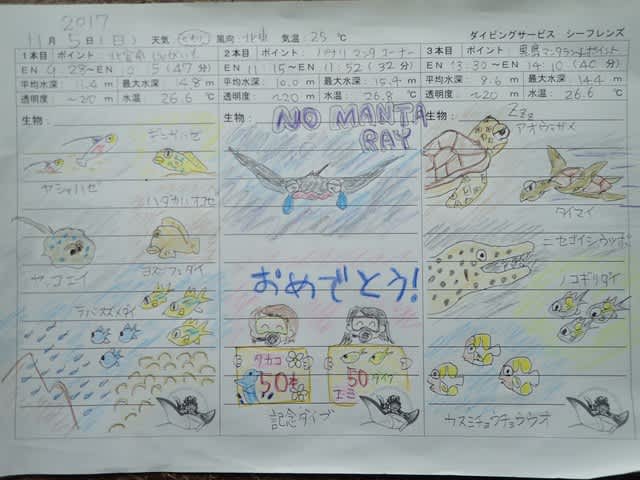 2017
11月 5日(日) 天気 くもり 風向: 北東 気温: 25℃ ダイビングサービス シーフレンズ
1本目 ポイント
EN 9:28～EN 10:15 (47分)
平均水深: 11.4 m 最大水深: 14.8 m
透明度: ～20 m 水温: 26.6 ℃
生物:
ヤシャハゼ
ハダカハオコゼ
ヤッコエイ
ヨスジフエダイ
デバスズメダイ
2本目 ポイント マンタ コーナー
EN 11:15～EN 11:52 (32分)
平均水深: 10.0 m 最大水深: 15.4 m
透明度: ～20 m 水温: 26.8 ℃
生物:
NO MANTA
RAY
おめでとう!
タカコ
50本
エミ
50ダイブ
記念ダイブ
3本目 ポイント
EN 13:30～EN 14:10 (40分)
平均水深: 8.6 m 最大水深: 14.4 m
透明度: ～20 m 水温: 26.6 ℃
生物:
Zzz
アオウミガメ
タイマイ
ニセゴイシウツボ
ノコギリダイ
カスミチョウチョウウオ